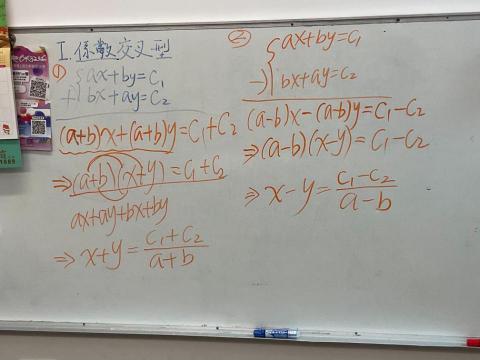 I. 係數交叉型
① { ax+by=c₁
+) bx+ay=c₂
(a+b)x+(a+b)y=c₁+c₂
⇒(a+b)(x+y)=c₁+c₂
ax+ay+bx+by
⇒ x+y=(c₁+c₂)/(a+b)
② { ax+by=c₁
-) bx+ay=c₂
(a-b)x-(a-b)y=c₁-c₂
⇒(a-b)(x-y)=c₁-c₂
⇒ x-y=(c₁-c₂)/(a-b)